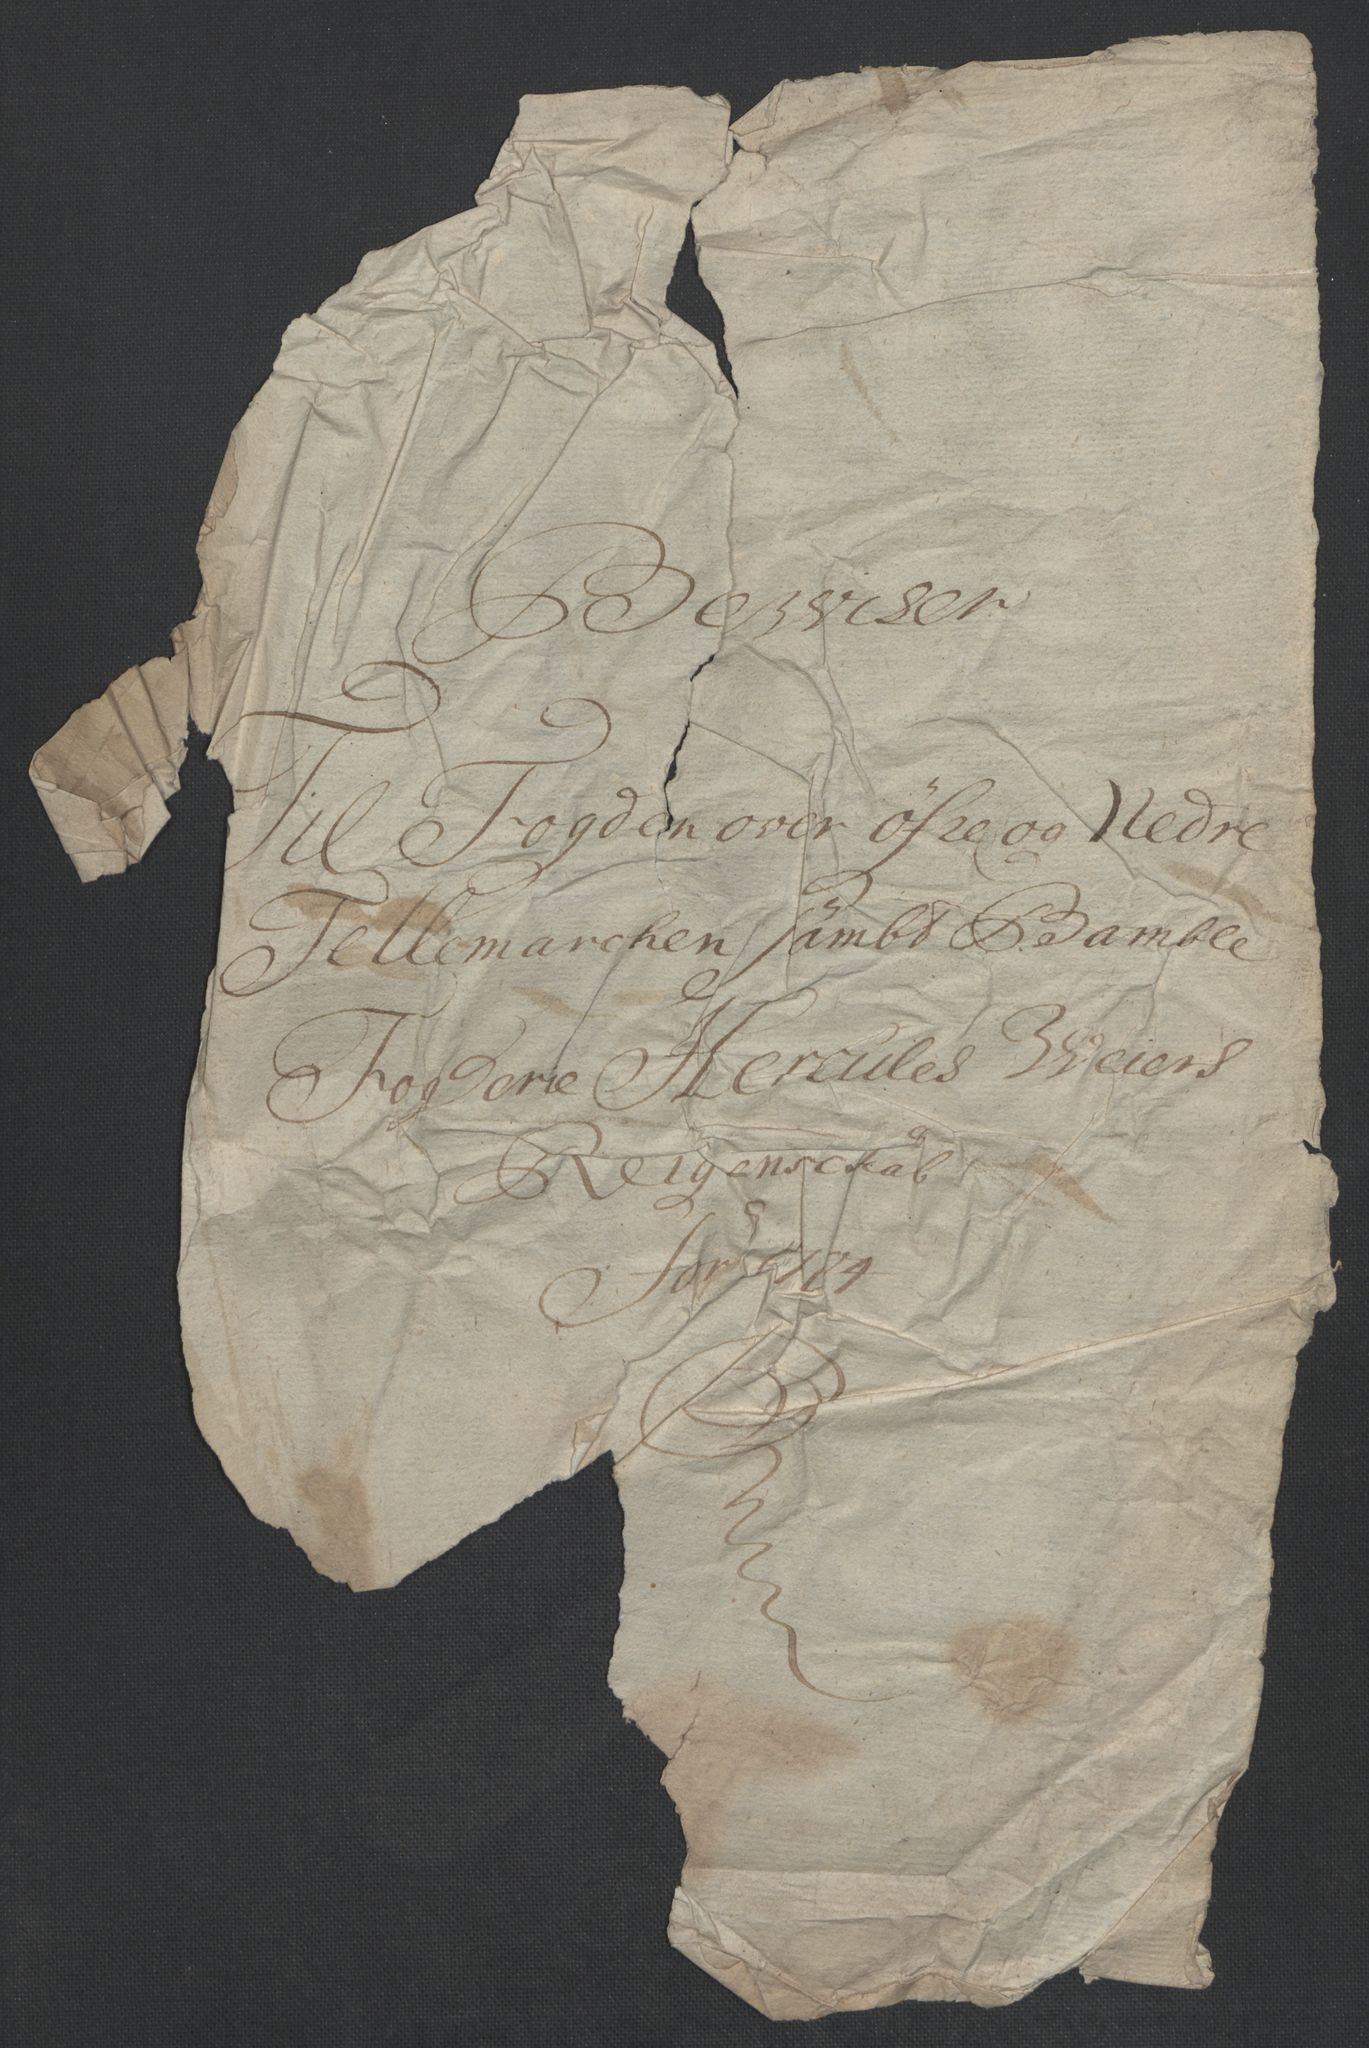 Bewiser
Til Fogden over öfre og Nedre
Tellemarchen sambt Bamble
Fogderie Hercules Weiers
Reigenschab
for